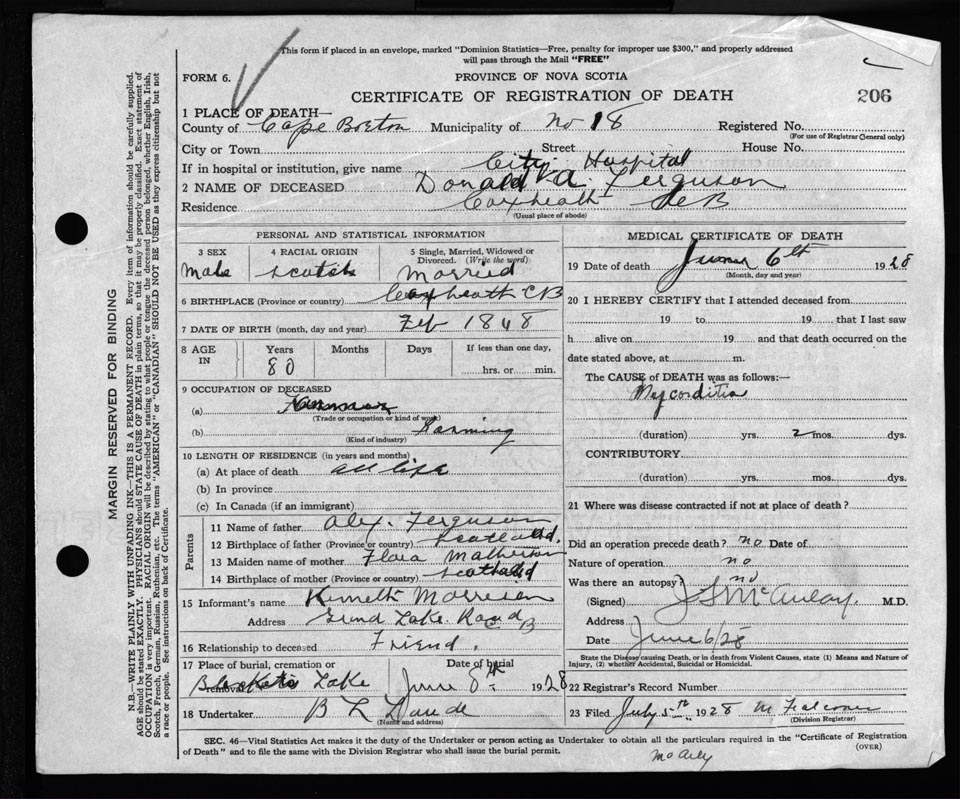 This form if placed in an envelope, marked "Dominion Statistics—Free, penalty for improper use $300," and properly addressed
will pass through the Mail "FREE"
FORM 6.
PROVINCE OF NOVA SCOTIA
CERTIFICATE OF REGISTRATION OF DEATH
206
1 PLACE OF DEATH—
County of Cape Breton Municipality of No 18 Registered No.
(For use of Registrar General only)
City or Town Street House No.
If in hospital or institution, give name City Hospital
2 NAME OF DECEASED Donald A. Ferguson
Residence Coxheath C B
(Usual place of abode)
PERSONAL AND STATISTICAL INFORMATION
3 SEX Male
4 RACIAL ORIGIN Scotch
5 Single, Married, Widowed or Divorced. (Write the word) Married
6 BIRTHPLACE (Province or country) Coxheath CB
7 DATE OF BIRTH (month, day and year) Feb 1848
8 AGE IN Years 80 Months Days If less than one day, hrs. or min.
9 OCCUPATION OF DECEASED
(a)
(Trade or occupation or kind of work)
(b) Farming
(Kind of industry)
10 LENGTH OF RESIDENCE (in years and months)
(a) At place of death all life
(b) In province
(c) In Canada (if an immigrant)
Parents
11 Name of father Alex. Ferguson
12 Birthplace of father (Province or country) Scotland.
13 Maiden name of mother Flora
14 Birthplace of mother (Province or country) Scotland
15 Informant's name Kenneth Morrison
Address Lake Road C B
16 Relationship to deceased Friend.
17 Place of burial, cremation or removal Lake
Date of burial June 8th 1928
18 Undertaker B L
(Name and address)
MEDICAL CERTIFICATE OF DEATH
19 Date of death June 6th 1928
(Month, day and year)
20 I HEREBY CERTIFY that I attended deceased from
19 to 19 that I last saw
h alive on 19 and that death occurred on the
date stated above, at m.
The CAUSE OF DEATH was as follows:—
(duration) yrs. 2 mos. dys.
CONTRIBUTORY
(duration) yrs. mos. dys.
21 Where was disease contracted if not at place of death?
Did an operation precede death? no Date of
Nature of operation no
Was there an autopsy? no
(Signed) McAulay M.D.
Address
Date June 6/28
State the Disease causing Death, or in death from Violent Causes, state (1) Means and Nature of
Injury, (2) whether Accidental, Suicidal or Homicidal.
22 Registrar's Record Number
23 Filed July 5th 1928 M Falconer
(Division Registrar)
SEC. 46—Vital Statistics Act makes it the duty of the Undertaker or person acting as Undertaker to obtain all the particulars required in the "Certificate of Registration
of Death" and to file the same with the Division Registrar who shall issue the burial permit.
(OVER)
MARGIN RESERVED FOR BINDING
N.B.—WRITE PLAINLY WITH UNFADING INK—THIS IS A PERMANENT RECORD. Every item of information should be carefully supplied.
AGE should be stated EXACTLY. PHYSICIANS should STATE CAUSE OF DEATH in plain terms, so that it may be properly classified. Exact statement of
OCCUPATION is very important. RACIAL ORIGIN will be described by stating to what people or tongue the deceased person belonged, whether English, Irish,
Scotch, French, German, Russian, Ruthenian, etc. The terms "AMERICAN" or "CANADIAN" SHOULD NOT BE USED as they express citizenship but not
a race or people. See instructions on back of Certificate.